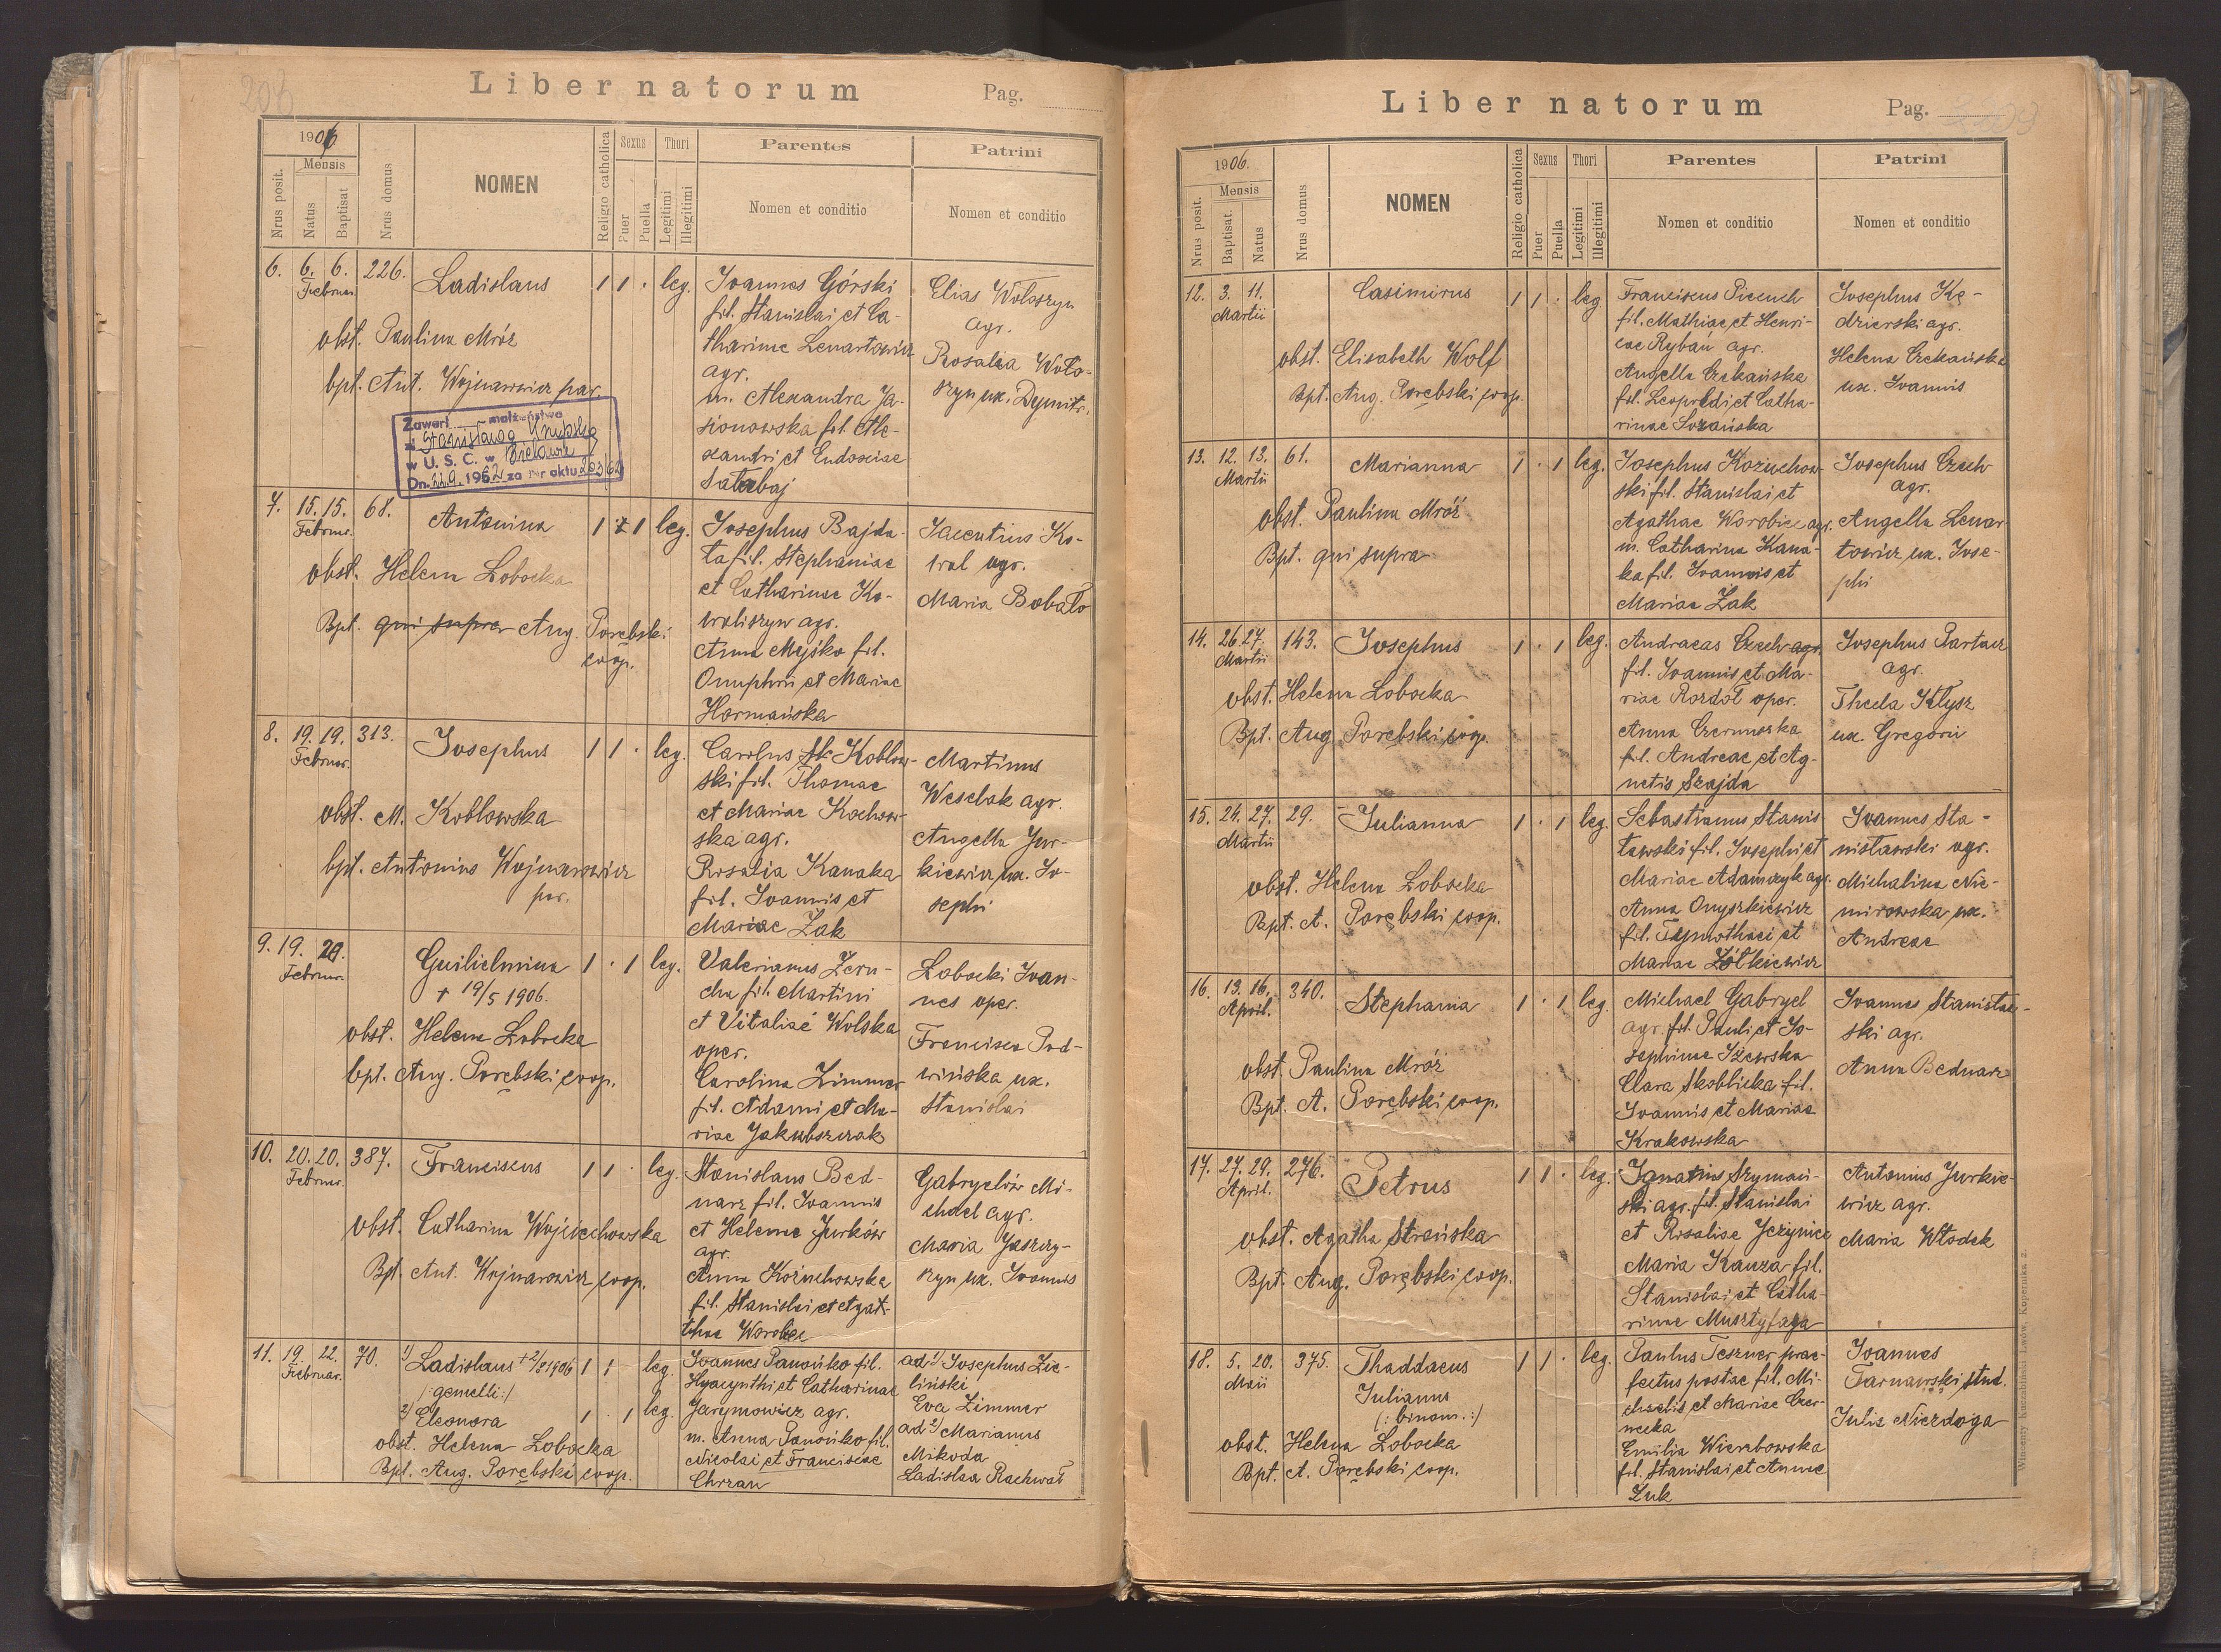 206
Liber natorum Pag.
1906
Nrus posit.
Mensis
Natus
Baptisat
Nrus domus
NOMEN
Religio catholica
Sexus
Puer
Puella
Thori
Legitimi
Illegitimi
Parentes
Nomen et conditio
Patrini
Nomen et conditio
6. 6. 6. 226. Ladislaus 1 1 · leg.
Februar.
obst. Paulina Mróz
bpt. Ant. Wojnarowicz par.
Zawarł małżeństwo
z Stanisławą
w U. S. C. w
Dn. 22.9. 1962 za nr aktu 203/62
Ioannes Górski
fil. Stanislai et Ca-
tharinae Lenartowicz
agr.
m. Alexandra Ja-
sionowska fil. Ale-
xandri et Eudoxiae
Satabaj
Elias Wołoszyn
agr.
Rosalia Woło-
szyn ux. Dymitr.
7. 15. 15. 68. Antonina 1 1 leg.
Februar.
obst. Helena Lobocka
Bpt. qui supra Aug. Porębski
coop.
Josephus Bajda-
ta fil. Stephaniae
et Catharinae Ko-
waliszyn agr.
Anna Myśko fil.
Onuphrii et Mariae
Harmańska
Iacentius Ko-
wal agr.
Maria Bobało
8. 19. 19. 313. Iosephus 1 1 · leg.
Februar.
obst. M. Kobłowska
bpt. Antonius Wojnarowicz
par.
Carolus Kobłow-
ski fil. Thomae
et Mariae Kochow-
ska agr.
Rosalia Kanaka
fil. Ioannis et
Mariae Żak
Martinus
Weselak agr.
Angella Jur-
kiewicz ux. Io-
sephi
9. 19. 20. Guilielmina 1 · 1 leg.
Februar. + 19/5 1906.
obst. Helena Lobocka
bpt. Aug. Porębski coop.
Valerianus Zeru-
cha fil. Martini
et Vitalisé Wolska
oper.
Carolina Zimmer
fil. Adami et Ma-
riae Jakubszczak
Lobocki Ioan-
nes oper.
Francisca Pod-
wińska ux.
Stanislai
10. 20. 20. 387. Franciscus 1 1 · leg.
Februar.
obst. Catharina Wojciechowska
Bpt. Ant. Wojnarowicz coop.
Stanislaus Bed-
narz fil. Ioannis
et Helenae Jurków
agr.
Anna Kożuchowska
fil. Stanislai et Agat-
thae Worobec
Gabryelów Mi-
chael agr.
Maria Jaszczy-
szyn ux. Ioannis
11. 19. 22. 70. 1) Ladislaus + 2/8 1906 1 1 leg.
Februar. /:gemelli:/
2) Eleonora 1 · 1 leg.
obst. Helena Lobocka
Bpt. Aug. Porębski coop.
Ioannes Panońko fil.
Hyacynthi et Catharinae
Jarymowicz agr.
m. Anna Panońko fil.
Nicolai et Franciscae
Chrzan
ad 1) Iosephus Zie-
liński
Eva Zimmer
ad 2) Marianus
Mikoda
Ladislaa Rachwał
Liber natorum Pag.
1906.
Nrus posit.
Mensis
Baptisat.
Natus
Nrus domus
NOMEN
Religio catholica
Sexus
Puer
Puella
Thori
Legitimi
Illegitimi
Parentes
Nomen et conditio
Patrini
Nomen et conditio
12. 3. 11. Casimirus 1 1 · leg.
Martii
obst. Elisabeth Wolf
Bpt. Aug. Porębski coop.
Franciscus Piecuch
fil. Mathiae et Henri-
cae Rybań agr.
Angella Czekańska
fil. Leopoldi et Catha-
rinae Lozańska
Iosephus Kę-
dzierski agr.
Helena Czekańska
ux. Ioannis
13. 12. 13. 61. Marianna 1 · 1 leg.
Martii
obst. Paulina Mróź
Bpt. qui supra
Iosephus Kożuchow-
ski fil. Stanislai et
Agathae Worobiec agr.
m. Catharina Kana-
ka fil. Ioannis et
Mariae Żak
Iosephus Czech
agr.
Angella Lenar-
towicz ux. Iose-
phi
14. 26. 27. 143. Iosephus 1 · 1 leg.
Martii
obst. Helena Lobocka
Bpt. Aug. Porębski coop.
Andraeas Czech agr.
fil. Ioannis et Ma-
riae Rozdół oper.
Anna Czarnowska
fil. Andreae et Ag-
netis Szajda
Iosephus Partacz
agr.
Thecla Kłysz
ux. Gregorii
15. 24. 27. 29. Iulianna 1 · 1 leg.
Martii
obst. Helena Lobocka
Bpt. A. Porębski coop.
Sebastianus Stanis
ławski fil. Iosephi et
Mariae Adamczyk agr.
Anna Onyszkiewicz
fil. Tymothaei et
Mariae Żółkiewicz
Ioannes Sta-
nisławski agr.
Michalina Nie-
mirowska ux.
Andreae
16. 13. 16. 340. Stephania 1 · 1 leg.
April.
obst. Paulina Mróz
Bpt. A. Porębski coop.
Michael Gabryel
agr. fil. Pauli et Io-
sephinae Iżewska
Clara Skoblicka fil.
Ioannis et Mariae
Krakowska
Ioannes Stanisław-
ski agr.
Anna Bednarz
17. 27. 29. 276. Petrus 1 1 · leg.
April.
obst. Agatha Strońska
Bpt. Aug. Porębski coop.
Ignatius Szymań-
ski agr. fil. Stanislai
et Rosaliae Jeżynice
Maria Kauza fil.
Stanislai et Catha-
rinae Musztyfaga
Antonius Jurkie-
wicz agr.
Maria Włodek
18. 5. 20. 375. Thaddaeus 1 1 · leg.
Maii Iulianus
(:binom.:)
obst. Helena Lobocka
Bpt. A. Porębski coop.
Paulus Teszner prae-
fectus postae fil. Mi-
chaelis et Mariae Czer-
necka
Emilia Wierzbowska
fil. Stanislai et Annae
Żuk
Ioannes
Tarnawski stud.
Iulia Niezdoga
Wincenty Kuczabiński Lwów, Kopernika 2.